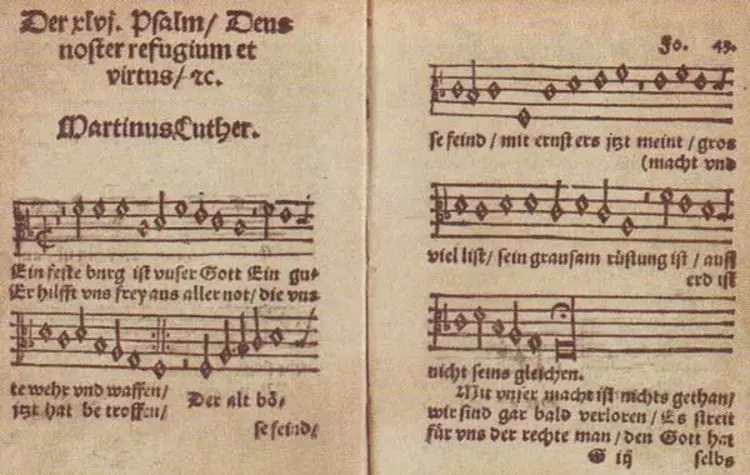 Der xlvj. Psalm/ Deus
noster refugium et
virtus/ ꝛc.
Martinus Luther.
Ein feste burg ist vnser Gott Ein gu⸗
Er hilfft vns frey aus aller not/ die vns
te wehr vnd waffen/
jtzt hat be troffen/
Der alt bö⸗
se feind/
Fo. 43.
se feind / mit ernst ers jtzt meint / gros
(macht vnd
viel list/ sein grausam rüstung ist / auff
erd ist
nicht seins gleichen.
Mit vnser macht ist nichts gethan/
wir sind gar bald verloren / Es streit
für vns der rechte man / den Gott hat
G iij
selbs